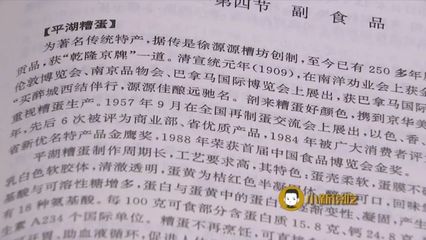 第四节 副食品
【平湖糟蛋】
为著名传统特产，据传是徐源源糟坊创制，至今已有250多年
贡品，获“乾隆京牌”一道。清宣统元年(1909)，在南洋劝业会上获金
伦敦博览会、南京品物会、巴拿马国际博览会上展出，获巴拿马国
“买醉城西结伴行，源源佳酿远驰名。剖来糟蛋好颜色，携到京华美
重视糟蛋生产。1957年9月在全国再制蛋交流会上展出，以色、香、
年，先后6次被评为商业部、省优质产品，1984年被广大消费者评
省新优名特产品金鹰奖，1988年荣获首届中国食品博览会金奖。
平湖糟蛋制作周期长，工艺要求高，其特色：蛋壳柔软，蛋膜不破
乳白色软胶体，清澈透明，蛋黄为桔红色半凝
基酸与可溶性糖增多，蛋白与蛋黄中的蛋白 渐变性、凝固，产生
有18种氨基酸。每100克可食部分含蛋白质15.8克、钙24.8
生素A234个国际单位。糟蛋不再烹饪，可
开胃、助血液循环，促进人
小新说吃